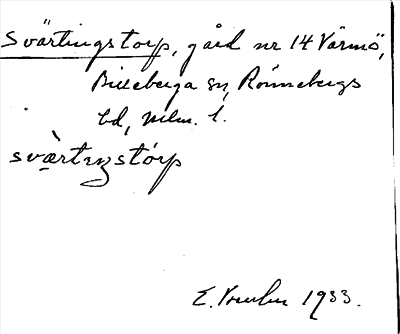 Svärtingstorp, gård nr 14 Värmö,
Billeberga sn, Rönnebergs
hd, Mlm. l.
svæ̀rtɩŋstórp
E. 1933.